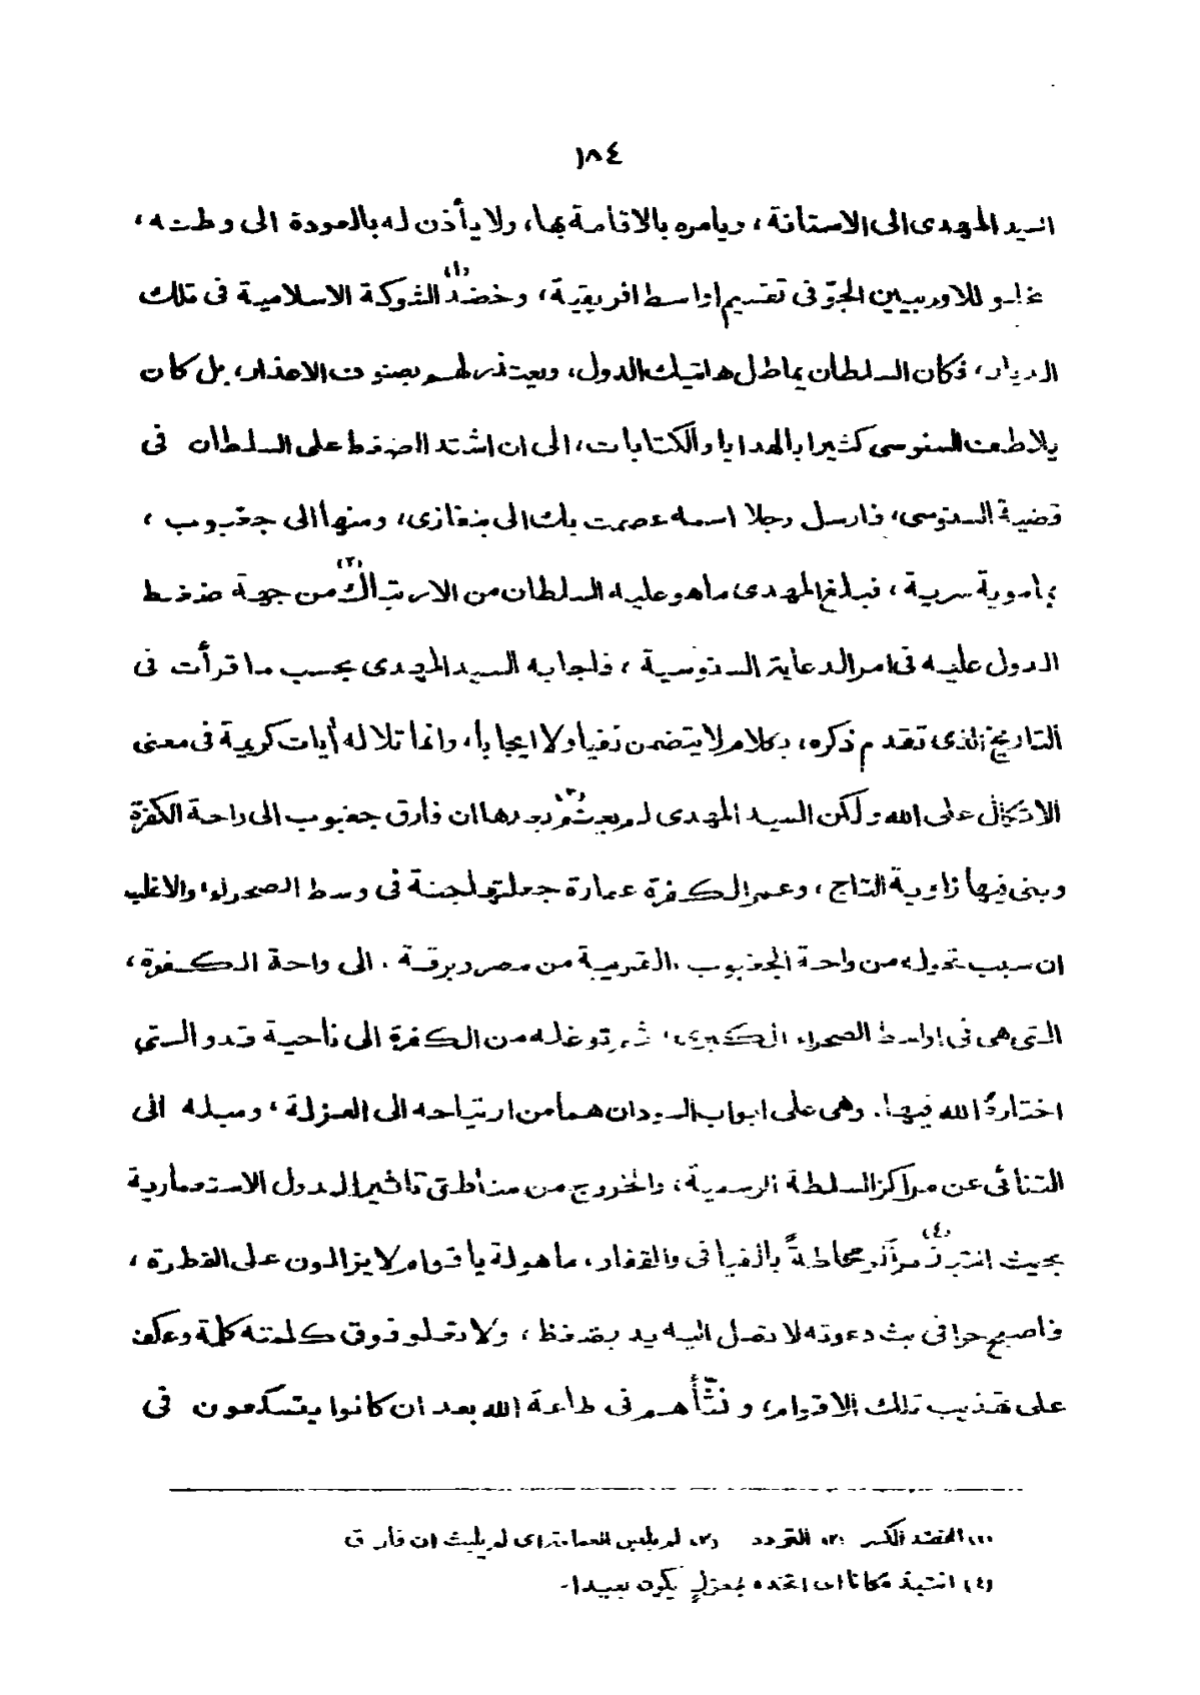 ١٨٤
السيد المهدى الى الاستانة، ويامره بالاقامة بها، ولا يأذن له بالعودة الى وطنه،
يخلو للاوربيين الجوّ فى تقسيم اواسط افريقية، وخضد(١) الشوكة الاسلامية فى تلك
الديار، فكان السلطان يماطل هاتيك الدول، ويعتذر لهم بصنوف الاعذار، بل كان
يلاطف السنوسى كثيرا بالهدايا والكتابات، الى ان اشتد الضغط على السلطان فى
قضية السنوسى، فارسل رجلا اسمه عصمت بك الى بنغازى، ومنها الى جغبوب،
بماموية سرية، فبلغ المهدى ما هو عليه السلطان من الارتباك(٢) من جهة ضغط
الدول عليه فى امر الدعاية السنوسية، فاجابه السيد المهدى بحسب ما قرأت فى
التاريخ الذى تقدم ذكره، بكلام لا يتضمن نفيا ولا ايجابا، وانما تلا له أيات كريمة فى معنى
الاتكال على الله ولكن السيد المهدى لم يعتم(٣) بعدها ان فارق جغبوب الى واحة الكفرة
وبنى فيها زاوية التاج، وعمر الكفرة عمارة جعلتها لجنة فى وسط الصحراء، والاغلب
ان سبب تحوله من واحة الجغبوب، القريبة من مصر وبرقة. الى واحة الكفرة،
التى هى فى اواسط الصحراء الكبرى، ثم توغله من الكفرة الى ناحية قدو التي
اختارهُ الله فيها. وهى على ابواب السودان هما من ارتياحه الى العزلة، وميله الى
التنائى عن مراكز السلطة الرسمية، والخروج من مناطق تاثير الدول الاستعمارية
بحيث انتبذ(٤) مراكز محاطةً بالفيافى والقفار، ماهولة باقوام لا يزالون على الفطرة،
فاصبح حرا فى بث دعوته لا تصل اليه يد بضغط، ولا تعلو فوق كلمته كلمة وعكف
على تهذيب تلك الاقوام، ونشّأهم فى طاعة الله بعد ان كانوا يتسكعون فى
(١) الخضد الكسر (٢) التردد (٣) لم يلبس العمامة اى لم يلبث ان فارق
(٤) انتبذ مكانا اى اتخذه بمعزلٍ يكون بعيدا.